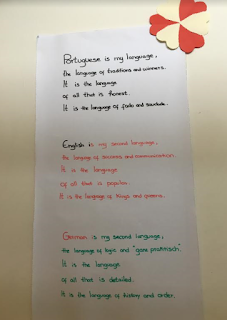 Portuguese is my language,
the language of traditions and winners.
It is the language
of all that is honest.
It is the language of fado and saudade.
English is my second language,
the language of sciences and communication.
It is the language
of all that is popular.
It is the language of kings and queens.
German is my second language,
the language of logic and "ganz praktisch".
It is the language
of all that is detailed.
It is the language of history and order.